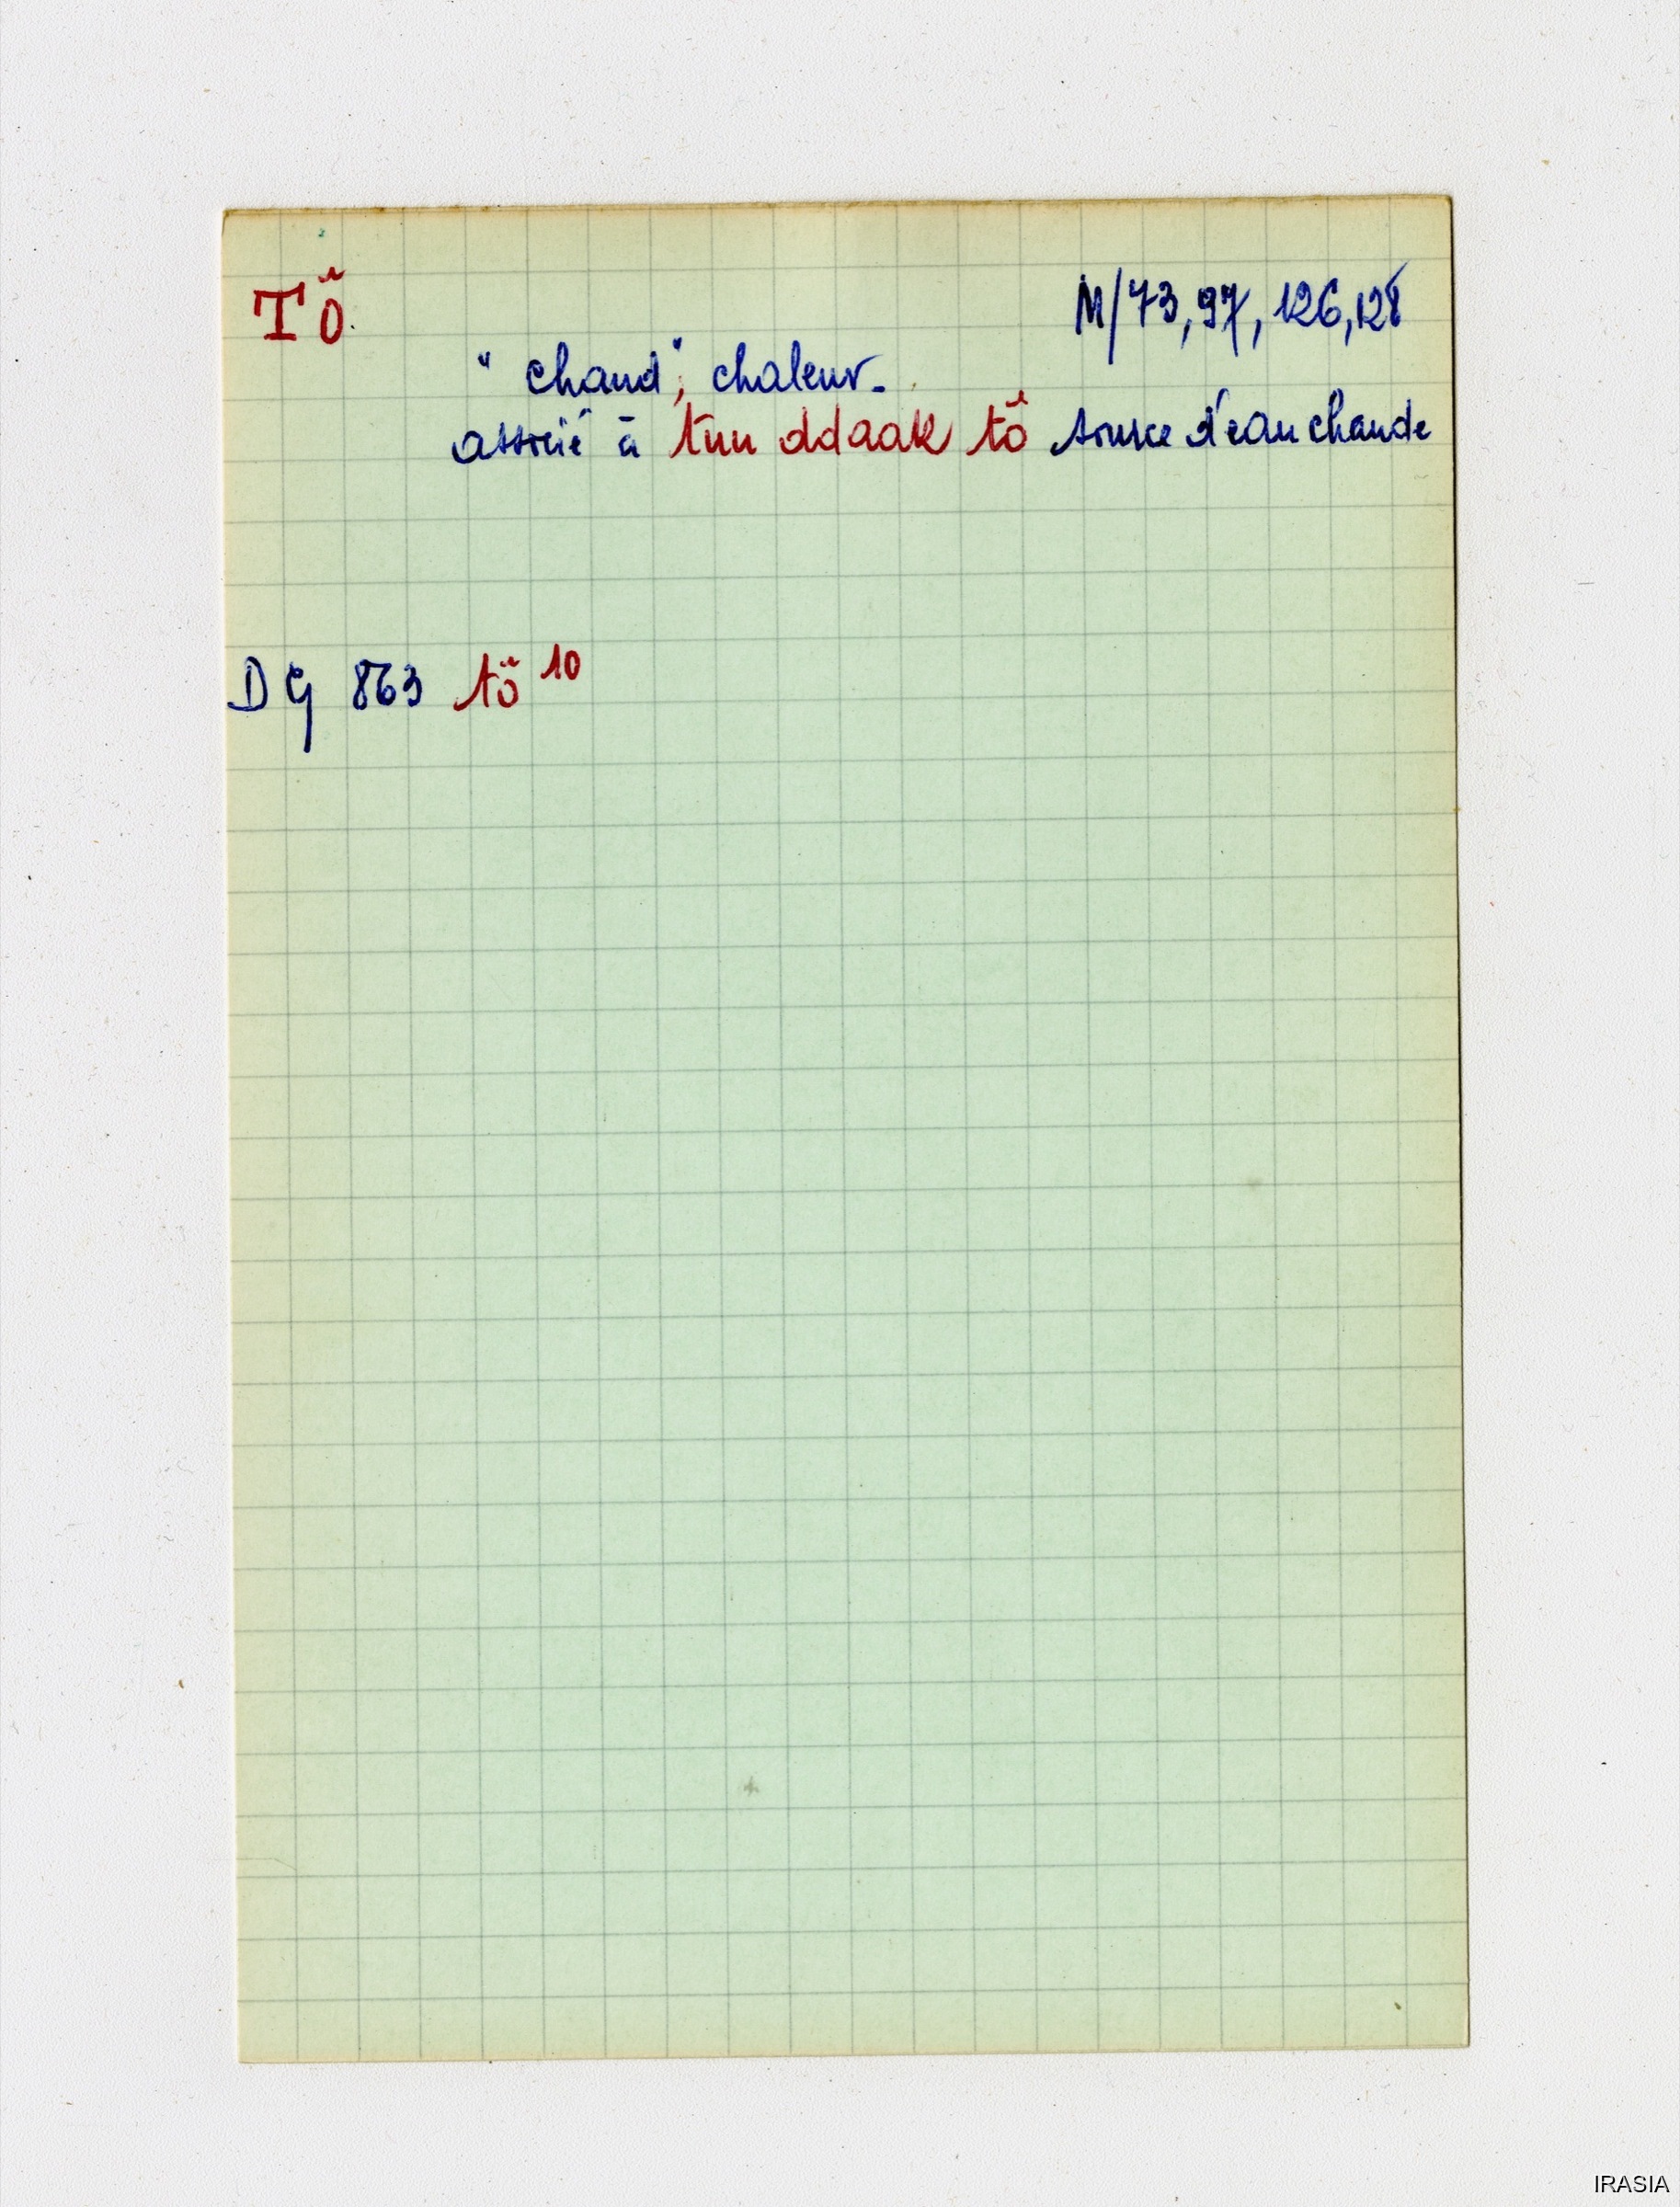 Tŏ̈ M/73, 97, 126, 128
"chaud", chaleur.
associé à tuu ddaak tŏ̈ source d'eau chaude
DG 863 tö 10
IRASIA